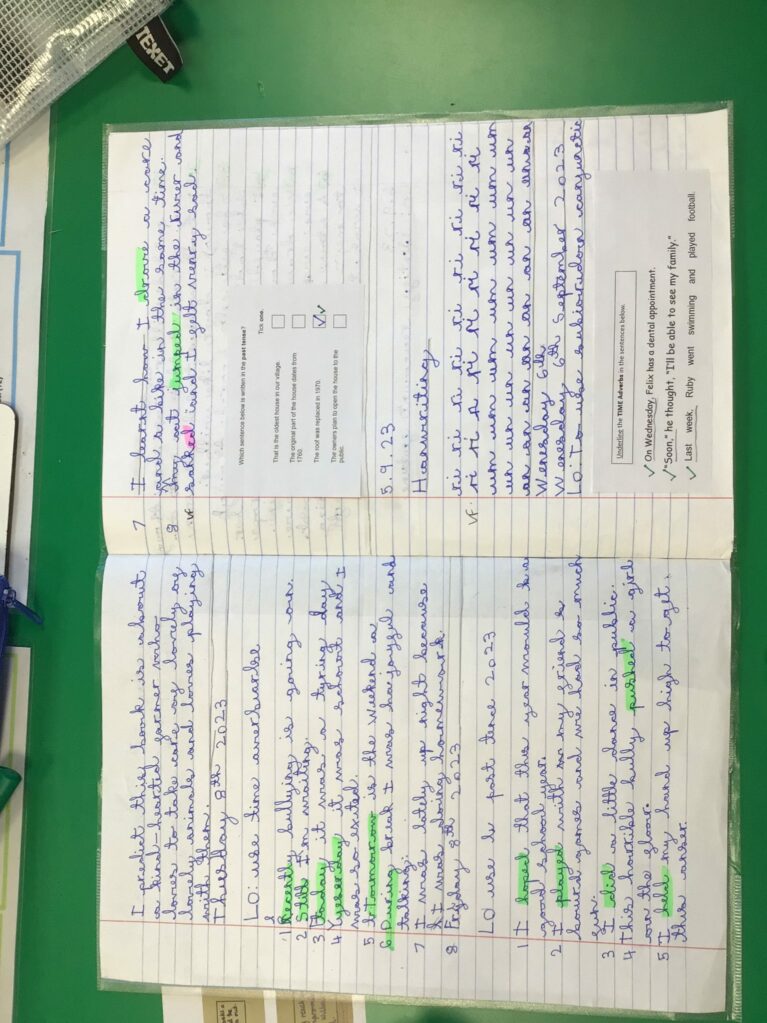 I predict this book is about
a kind-hearted farmer who
loves to take care of lovely og
lovely animals and loves playing
with them.
Thusday 8th 2023
LO: use time averbarbs
1 Recently bullying is going on.
2 Still I'm waiting.
3 Today it was a tyring day
4 Yeserday it was school and I
was so exited.
5 Tomorrow is the Weekend a
6 During break I was hayoyful and
talking.
7 I was lately up night because
I was doing homework.
8 Fryday 8th 2023
LO use to past tence 2023
1 I hoped that this year would be a
good school year.
2 I played with my friend
board games and we had so much
fun.
3 I did a little dance in public.
4 This horrible bully pushed a girl
on the floor.
5 I held my hand up high to get
this anser.
7 I learnt how I drove a care
and a bike in the same time.
8 My cat jumped in the river and
VF soaked and I felt verry sad.
Which sentence below is written in the past tense?
Tick one.
That is the oldest house in our village.
The original part of the house dates from
1760.
The roof was replaced in 1970.
The owners plan to open the house to the
public.
5.9.23
Hanwriting
VF ri ri ri ri ri ri ri ri ri
ri ri ri ri ri ri ri ri
um um um um um um um
un un un un un un un
an an an an an an an an an
Wenesday 6th
Wenesday 6th September 2023
LO: To use subiordion conjunctio
Underline the TIME Adverbs in the sentences below.
On Wednesday, Felix has a dental appointment.
"Soon," he thought, "I'll be able to see my family."
Last week, Ruby went swimming and played football.
TEXET